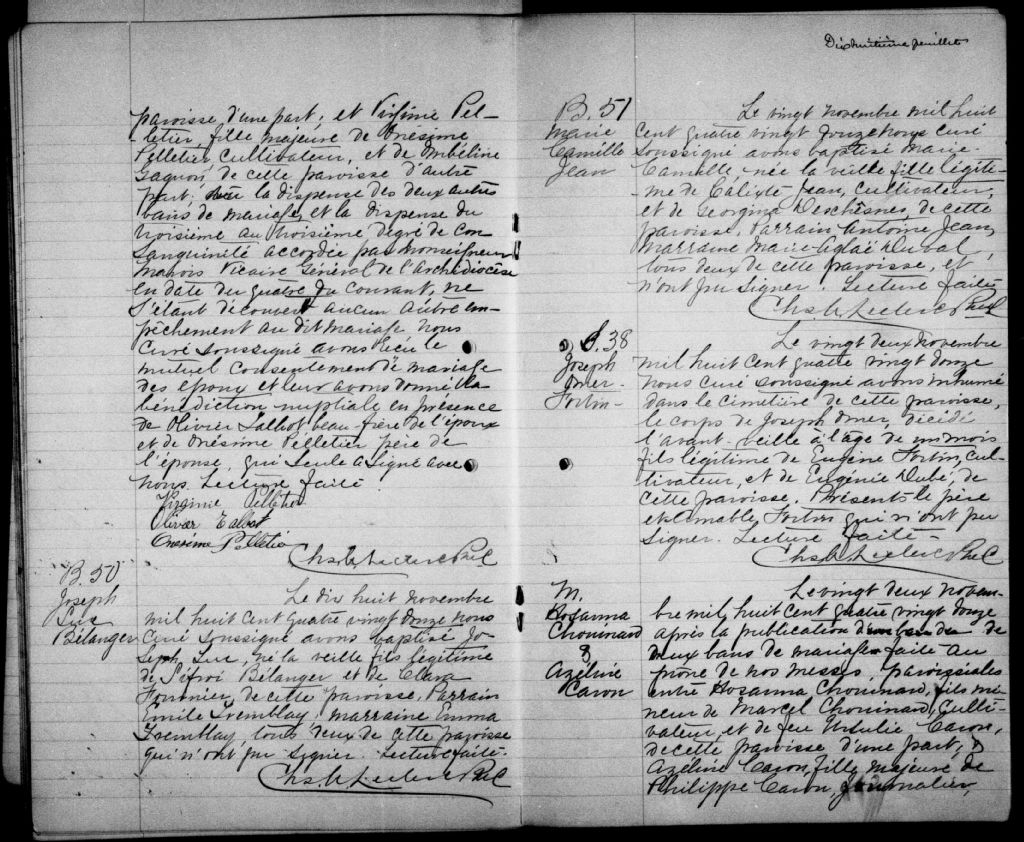 paroisse, d'une part; et Virginie Pel-
letier fille majeure de Onésime
Pelletier cultivateur, et de Ombéline
Gagnon, de cette paroisse d'autre
part; la dispense des deux autres
bans de mariage et la dispense du
troisième au troisième degré de con
sanguinité accordée par Monseigneur
Marois Vicaire Général de l'Archidiocèse
en date du quatre du courant, ne
s'étant découvert aucun autre em-
pêchement au dit mariage Nous
Curé soussigné avons reçu le
mutuel consentement de mariage
des époux et leur avons donné la
bénédiction nuptiale en présence
de Olivier Talbot beau-frère de l'époux
et de Onésime Pelletier père de
l'épouse, qui seule a signé avec
nous. Lecture faite.
Virginie Pelletier
Olivier Talbot
Onésime Pelletier
Chs. Leclerc Ptre C
B. 50
Joseph
Luc
Bélanger
Le dix huit novembre
mil huit cent quatre vingt douze nous
Curé soussigné avons baptisé Jo
seph, Luc, né la veille fils légitime
de Sifroi Bélanger et de Clara
Fournier, de cette paroisse. Parrain
Émile Tremblay; marraine Emma
Tremblay, tous deux de cette paroisse
qui n'ont pu signer. Lecture faite.
Chs. Leclerc Ptre C
Dixhuitième feuillet
B. 51
Marie
Camille
Jean
Le vingt novembre mil huit
cent quatre vingt douze nous curé
soussigné avons baptisé Marie-
Camille, née la veille fille légiti-
me de Calixte Jean, cultivateur,
et de Georgina Deschêsnes, de cette
paroisse. Parrain Antoine Jean,
marraine Marie-Aglaé Duval,
tous deux de cette paroisse, et
n'ont pu signer. Lecture faite
Chs. Leclerc Ptre C
S. 38
Joseph
Omer-
Fortin-
Le vingt deux novembre
mil huit cent quatre vingt douze
nous curé soussigné avons inhumé
dans le cimetière de cette paroisse,
le corps de Joseph Omer, décédé
l'avant-veille à l'âge de un mois
fils légitime de Eugène Fortin, cul-
tivateur, et de Eugénie Dubé, de
cette paroisse. Présents le père
et Aimable Fortin qui n'ont pu
signer. Lecture faite-
Chs. Leclerc Ptre C
M.
Hosanna
Chouinard
&
Azéline
Caron
Le vingt deux novem-
bre mil huit cent quatre vingt douze
après la publication de
deux bans de mariage faite au
prône de nos messes paroissiales
entre Hosanna Chouinard, fils mi-
neur de Marcel Chouinard, culti-
vateur, et de feu Ursulie Caron,
de cette paroisse d'une part; &
Azéline Caron, fille majeure de
Philippe Caron, journalier,